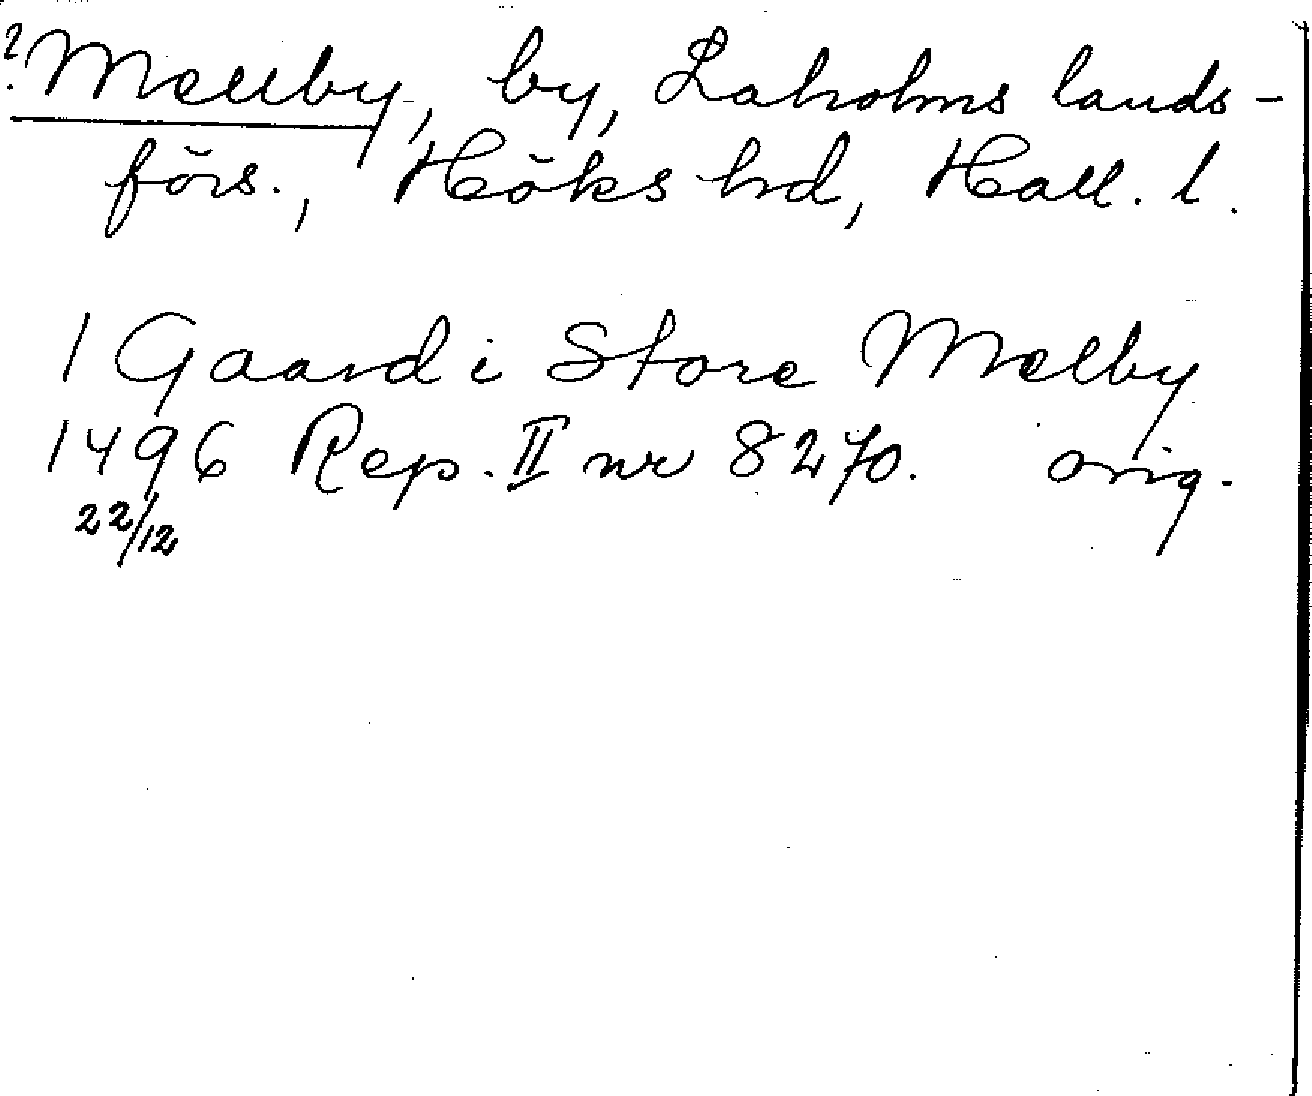 ? Mellby, by, Laholms lands-
förs., Höks hd, Hall. l.
1 Gaard i Store Melby
1496 Rep. II nr 8270. orig.
22/12